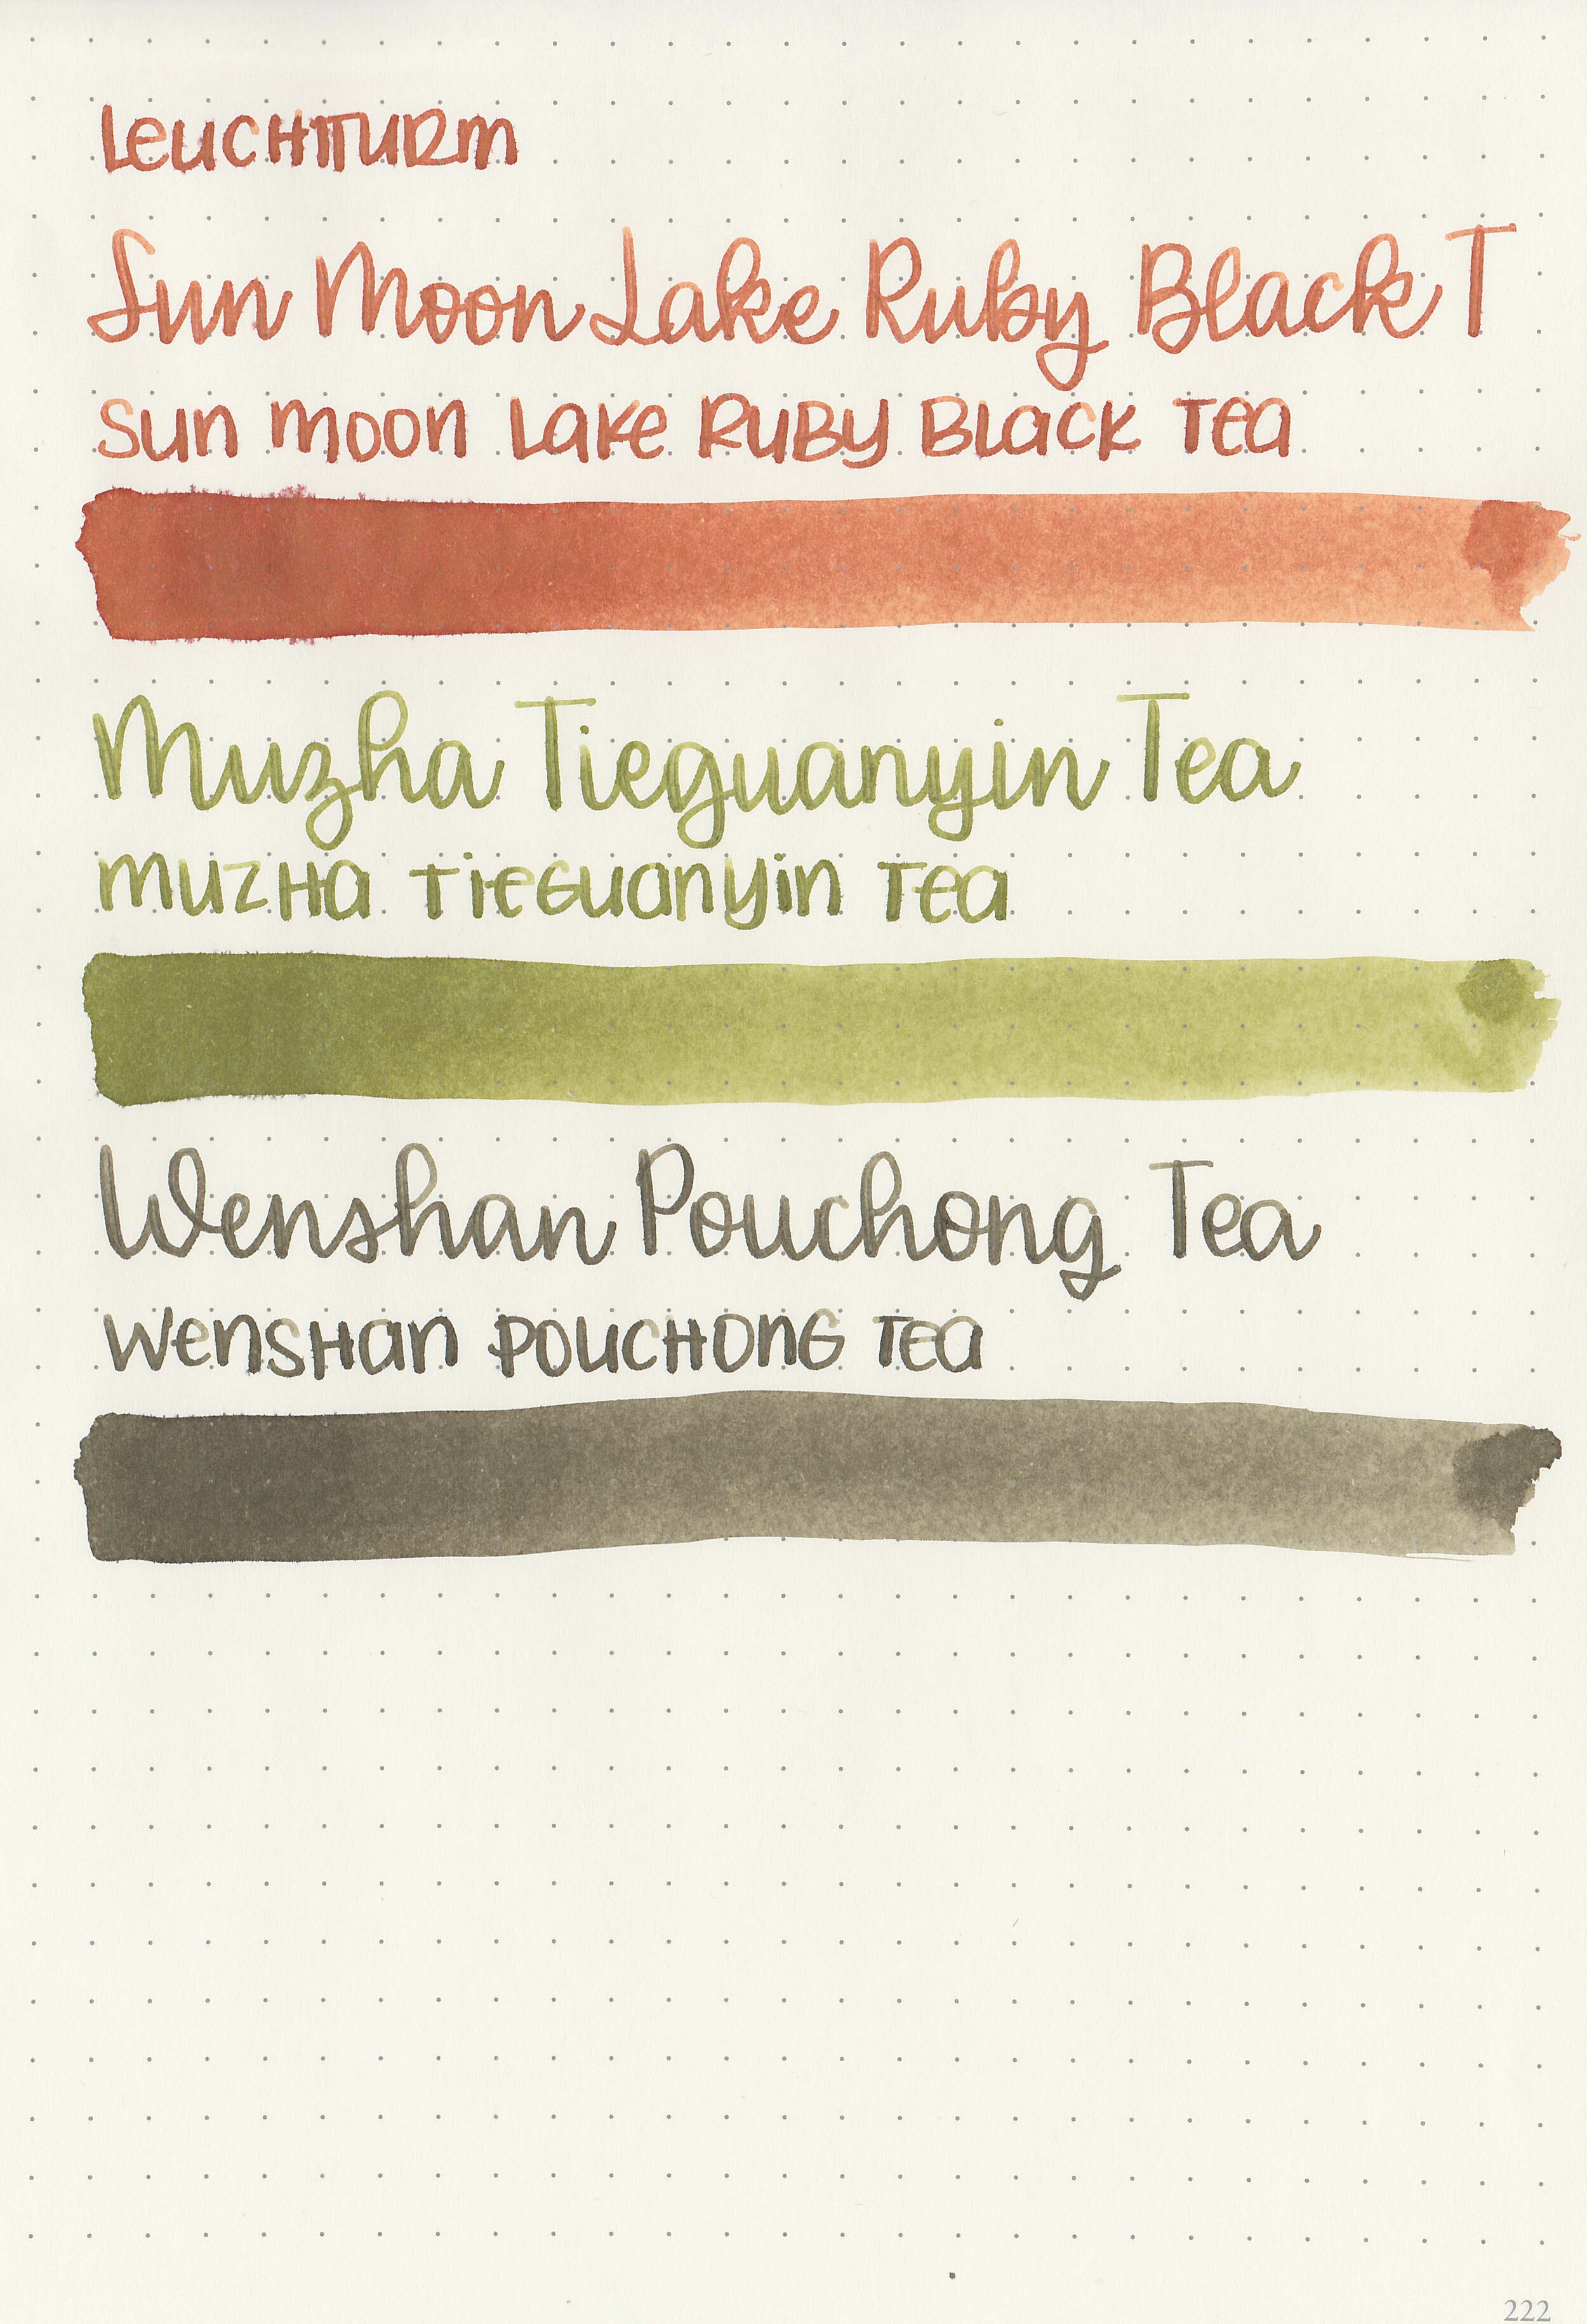 Leuchtturm
Sun Moon Lake Ruby Black T
Sun Moon Lake Ruby Black Tea
Muzha Tieguanyin Tea
Muzha Tieguanyin Tea
Wenshan Pouchong Tea
Wenshan Pouchong Tea
222